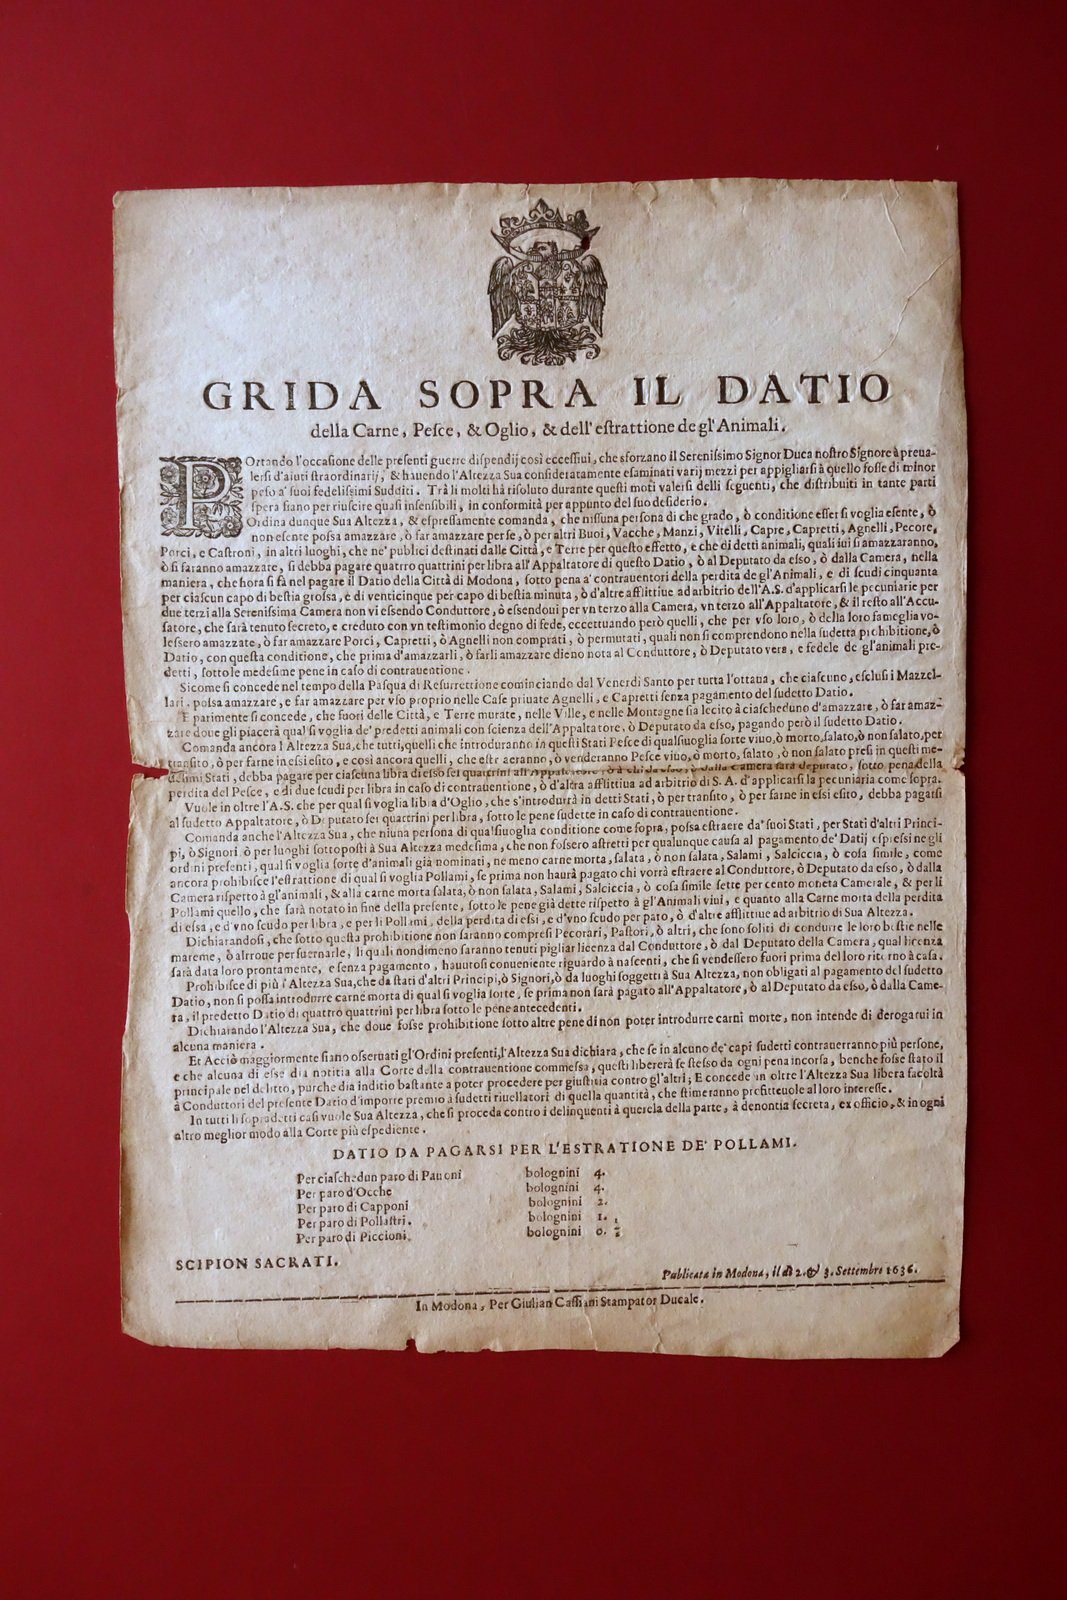 GRIDA SOPRA IL DATIO
della Carne, Peſce, & Oglio, & dell'eſtrattione de gl'Animali.
POrtando l'occaſione delle preſenti guerre diſpendij così ecceſſiui, che sforzano il Sereniſſimo Signor Duca noſtro Signore à preua-
lerſi d'aiuti ſtraordinarij, & hauendo l'Altezza Sua conſideratamente eſaminati varij mezzi per appigliarſi à quello foſſe di minor
peſo a' ſuoi fedeliſſimi Sudditi. Trà li molti hà riſoluto durante queſti moti valerſi delli ſeguenti, che diſtribuiti in tante parti
ſpera ſiano per riuſcire quaſi inſenſibili, in conformità per appunto del ſuo deſiderio.
Ordina dunque Sua Altezza, & eſpreſſamente comanda, che niſſuna perſona di che grado, ò conditione eſſer ſi voglia eſente, ò
non eſente poſſa amazzare, ò far amazzare per ſe, ò per altri Buoi, Vacche, Manzi, Vitelli, Capre, Capretti, Agnelli, Pecore,
Porci, e Caſtroni, in altri luoghi, che ne' publici deſtinati dalle Città, e Terre per queſto effetto, e che di detti animali, quali iui ſi amazzaranno,
ò ſi faranno amazzare, ſi debba pagare quattro quattrini per libra all'Appaltatore di queſto Datio, ò al Deputato da eſſo, ò dalla Camera, nella
maniera, che hora ſi fà nel pagare il Datio della Città di Modona, ſotto pena a' contrauentori della perdita de gl'Animali, e di ſcudi cinquanta
per ciaſcun capo di beſtia groſſa, e di venticinque per capo di beſtia minuta, ò d'altre afflittiue ad arbitrio dell'A.S. d'applicarſi le pecuniarie per
due terzi alla Sereniſſima Camera non vi eſſendo Conduttore, ò eſſendoui per vn terzo alla Camera, vn terzo all'Appaltatore, & il reſto all'Accu-
ſatore, che ſarà tenuto ſecreto, e creduto con vn teſtimonio degno di fede, eccettuando però quelli, che per vſo loro, ò della loro fameglia vo-
leſſero amazzate, ò far amazzare Porci, Capretti, ò Agnelli non comprati, ò permutati, quali non ſi comprendono nella ſudetta prohibitione, ò
Datio, con queſta conditione, che prima d'amazzarli, ò farli amazzare dieno nota al Conduttore, ò Deputato vera, e fedele de gl'animali pre-
detti, ſotto le medeſime pene in caſo di contrauentione.
Sicome ſi concede nel tempo della Paſqua di Reſurrettione cominciando dal Venerdì Santo per tutta l'ottaua, che ciaſcuno, eſcluſi i Mazzel-
lari, poſſa amazzare, e far amazzare per vſo proprio nelle Caſe priuate Agnelli, e Capretti ſenza pagamento del ſudetto Datio.
E parimente ſi concede, che fuori delle Città, e Terre murate, nelle Ville, e nelle Montagne ſia lecito à ciaſcheduno d'amazzare, ò far amaz-
zare doue gli piacerà qual ſi voglia de' predetti animali con ſcienza dell'Appaltatore, ò Deputato da eſſo, pagando però il ſudetto Datio.
Comanda ancora l'Altezza Sua, che tutti, quelli che introduranno in queſti Stati Peſce di qualſiuoglia ſorte viuo, ò morto, ſalato, ò non ſalato, per
tranſito, ò per farne in eſſi eſito, e così ancora quelli, che eſtraeranno, ò venderanno Peſce viuo, ò morto, ſalato, ò non ſalato preſi in queſti me-
deſimi Stati, debba pagare per ciaſcuna libra di eſſo ſei quattrini all'Appaltatore, ò à chi da eſſo, ò dalla Camera ſarà deputato, ſotto pena della
perdita del Peſce, e di due ſcudi per libra in caſo di contrauentione, ò d'altra afflittiua ad arbitrio di S. A. d'applicarſi la pecuniaria come ſopra.
Vuole in oltre l'A.S. che per qual ſi voglia libra d'Oglio, che s'introdurrà in detti Stati, ò per tranſito, ò per farne in eſſi eſito, debba pagarſi
al ſudetto Appaltatore, ò Deputato ſei quattrini per libra, ſotto le pene ſudette in caſo di contrauentione.
Comanda anche l'Altezza Sua, che niuna perſona di qualſiuoglia conditione come ſopra, poſſa eſtraere da' ſuoi Stati, per Stati d'altri Princi-
pi, ò Signori, ò per luoghi ſottopoſti à Sua Altezza medeſima, che non foſſero aſtretti per qualunque cauſa al pagamento de' Datij eſpreſſi negli
ordini preſenti, qual ſi voglia ſorte d'animali già nominati, ne meno carne morta, ſalata, ò non ſalata, Salami, Salciccia, ò coſa ſimile, come
ancora prohibiſce l'eſtrattione di qual ſi voglia Pollami, ſe prima non haurà pagato chi vorrà eſtraere al Conduttore, ò Deputato da eſſo, ò dalla
Camera riſpetto à gl'animali, & alla carne morta ſalata, ò non ſalata, Salami, Salciccia, ò coſa ſimile ſette per cento moneta Camerale, & per li
Pollami quello, che ſarà notato in fine della preſente, ſotto le pene già dette riſpetto à gl'Animali viui, e quanto alla Carne morta della perdita
di eſſa, e d'vno ſcudo per libra, e per li Pollami, della perdita di eſſi, e d'vno ſcudo per paro, ò d'altre afflittiue ad arbitrio di Sua Altezza.
Dichiarandoſi, che ſotto queſta prohibitione non ſaranno compreſi Pecorari, Paſtori, ò altri, che ſono ſoliti di condurre le loro beſtie nelle
mareme, ò altroue per ſuernarle, li quali nondimeno ſaranno tenuti pigliar licenza dal Conduttore, ò dal Deputato della Camera, qual licenza
ſarà data loro prontamente, e ſenza pagamento, hauutoſi conueniente riguardo à naſcenti, che ſi vendeſſero fuori prima del loro ritorno à caſa.
Prohibiſce di più l'Altezza Sua, che da ſtati d'altri Principi, ò Signori, ò da luoghi ſoggetti à Sua Altezza, non obligati al pagamento del ſudetto
Datio, non ſi poſſa introdurre carne morta di qual ſi voglia ſorte, ſe prima non ſarà pagato all'Appaltatore, ò al Deputato da eſſo, ò dalla Came-
ra, il predetto Datio di quattro quattrini per libra ſotto le pene antecedenti.
Dichiarando l'Altezza Sua, che doue foſſe prohibitione ſotto altre pene di non poter introdurre carni morte, non intende di derogarui in
alcuna maniera.
Et Acciò maggiormente ſiano oſeruati gl'Ordini preſenti, l'Altezza Sua dichiara, che ſe in alcuno de' capi ſudetti contrauerranno più perſone,
e che alcuna di eſſe dia notitia alla Corte della contrauentione commeſſa, queſti libererà ſe ſteſſo da ogni pena incorſa, benche foſſe ſtato il
principale nel delitto, purche dia inditio baſtante a poter procedere per giuſtitia contro gl'altri; E concede in oltre l'Altezza Sua libera facoltà
à Conduttori del preſente Datio d'imporre premio à ſudetti riuellatori di quella quantità, che ſtimeranno profitteuole al loro intereſſe.
In tutti li ſopradetti caſi vuole Sua Altezza, che ſi proceda contro i delinquenti à querela della parte, à denontia ſecreta, ex officio, & in ogni
altro meglior modo alla Corte più eſpediente.
DATIO DA PAGARSI PER L'ESTRATIONE DE' POLLAMI.
Per ciaſchedun paro di Pauoni bolognini 4.
Per paro d'Ocche bolognini 4.
Per paro di Capponi bolognini 2.
Per paro di Pollaſtri. bolognini 1.
Per paro di Piccioni. bolognini 0. ½
SCIPION SACRATI.
Publicata in Modona, il dì 2. & 3. Settembre 1636.
In Modona, Per Giulian Caſſiani Stampator Ducale.